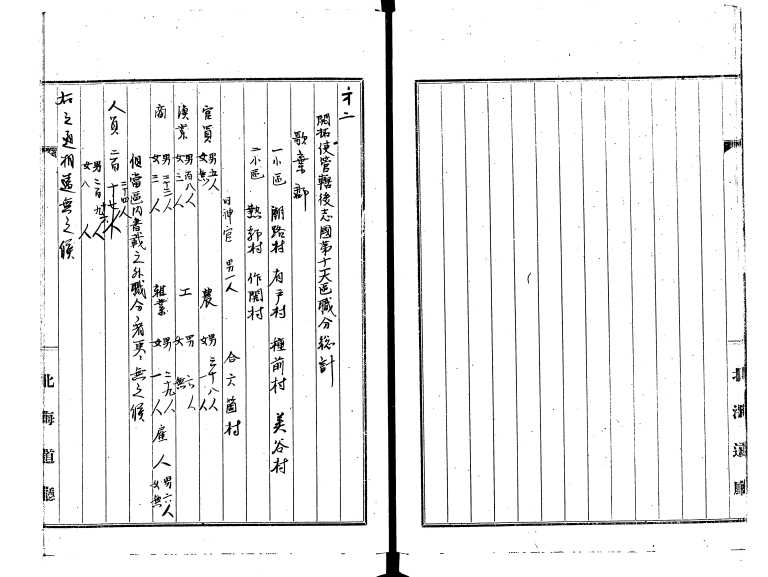 才二
開拓使管轄後志國第十大区職分総計
歌棄郡
一小區 潮路村 有戸村 種前村 美谷村
二小區 熱郛村 作開村
合六箇村
神官 男一人
官員 男五人 女無
農 男三十八人 女一人
漁業 男百八人 女三人
工 男六人 女無
商 男二十三人 女三人
雑業 男三十九人 女一人
雇人 男六人 女無
但當區内書載之外職分ノ者更ニ無之候
人員二百
男二百九人
女八人
右之通相違無之候
北海道廳
北海道廳